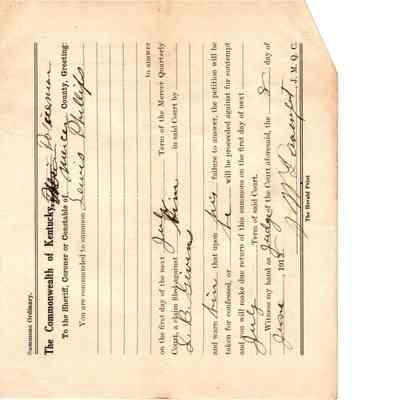 Summons Ordinary.
The Commonwealth of Kentucky,
To the Sheriff, Coroner or Constable of Mercer County, Greeting:
You are commanded to summon Lewis Phillips
to answer
on the first day of the next July Term of the Mercer Quarterly
Court, a claim filed against him in said Court by
L. B. Givens
and warn him that upon his failure to answer, the petition will be
taken for confessed, or he will be proceeded against for contempt
and you will make due return of this summons on the first day of next
July Term of said Court.
Witness my hand as Judge of the Court aforesaid, the 8 day of
June, 1912
J. M. Q. C.
The Herald Print